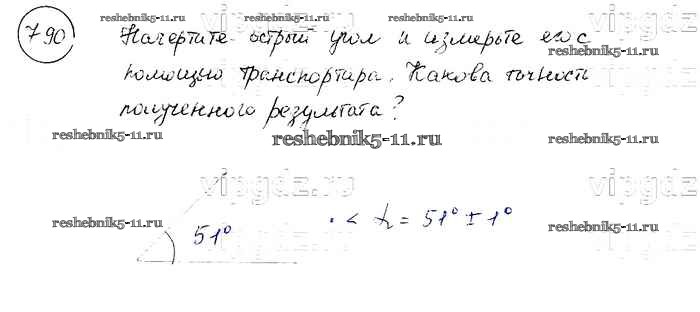 790
Начертите острый угол и измерьте его с
помощью транспортира. Какова точность
полученного результата?
51°
∠ = 51° ± 1°
reshebnik5-11.ru
reshebnik5-11.ru
reshebnik5-11.ru
reshebnik5-11.ru
reshebnik5-11.ru
reshebnik5-11.ru
reshebnik5-11.ru
reshebnik5-11.ru
vipgdz.ru
vipgdz.ru
vipgdz.ru
vipgdz.ru